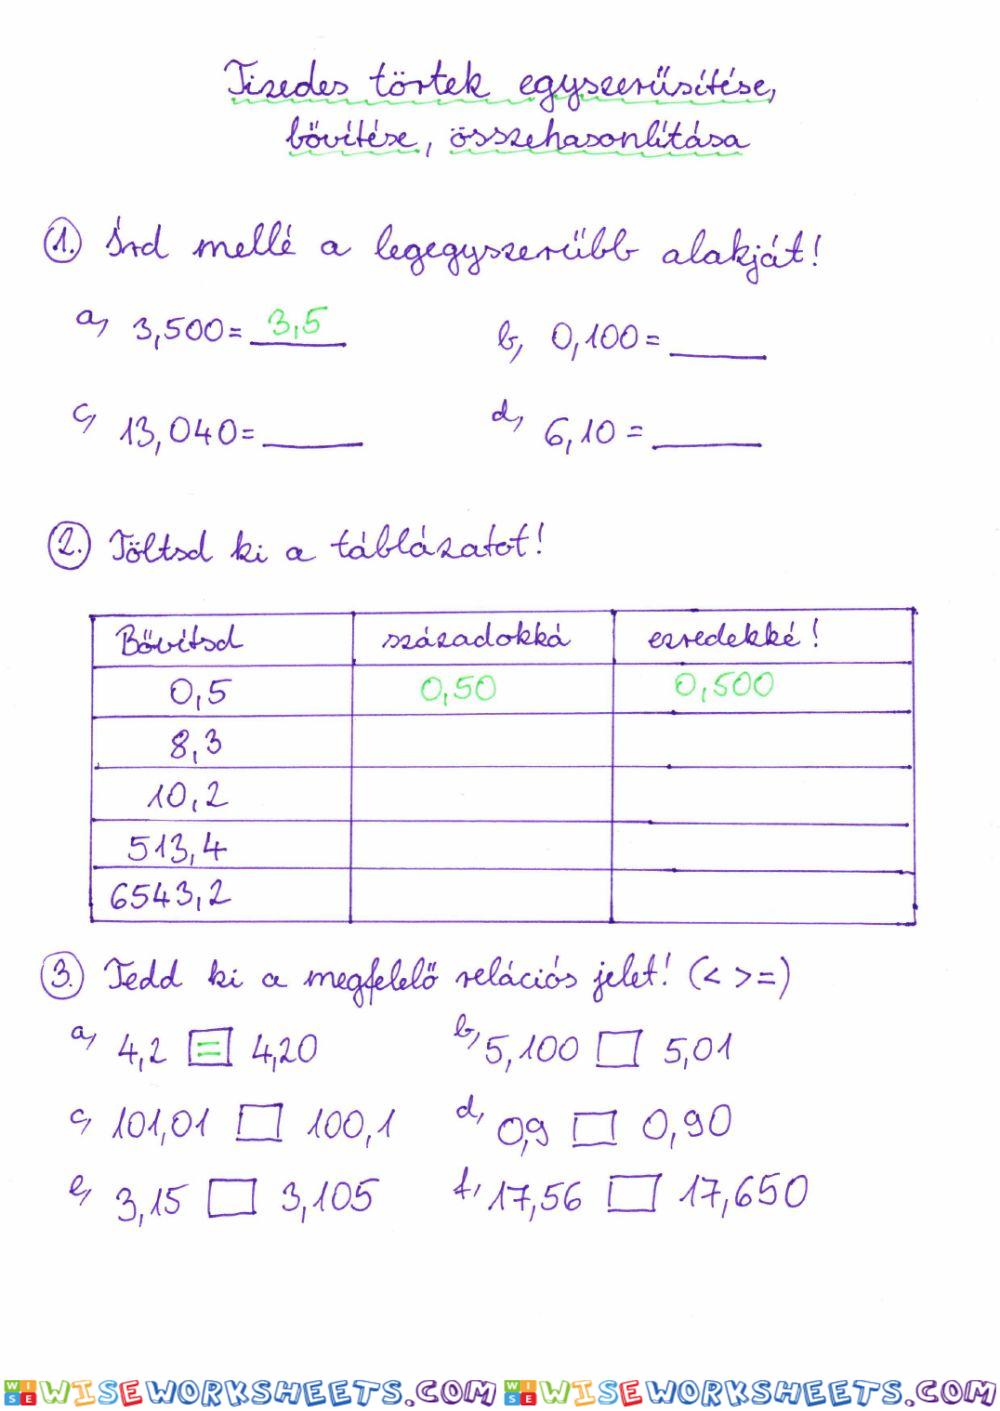 Tizedes törtek egyszerűsítése,
bővítése, összehasonlítása
1. Írd mellé a legegyszerűbb alakját!
a, 3,500= 3,5 b, 0,100=
c, 13,040= d, 6,10 =
2. Töltsd ki a táblázatot!
Bővítsd századokká ezredekké!
0,5 0,50 0,500
8,3
10,2
513,4
6543,2
3. Tedd ki a megfelelő relációs jelet! (< > =)
a, 4,2 = 4,20 b, 5,100 □ 5,01
c, 101,01 □ 100,1 d, 0,9 □ 0,90
e, 3,15 □ 3,105 f, 17,56 □ 17,650
WISEWORKSHEETS.COM WISEWORKSHEETS.COM